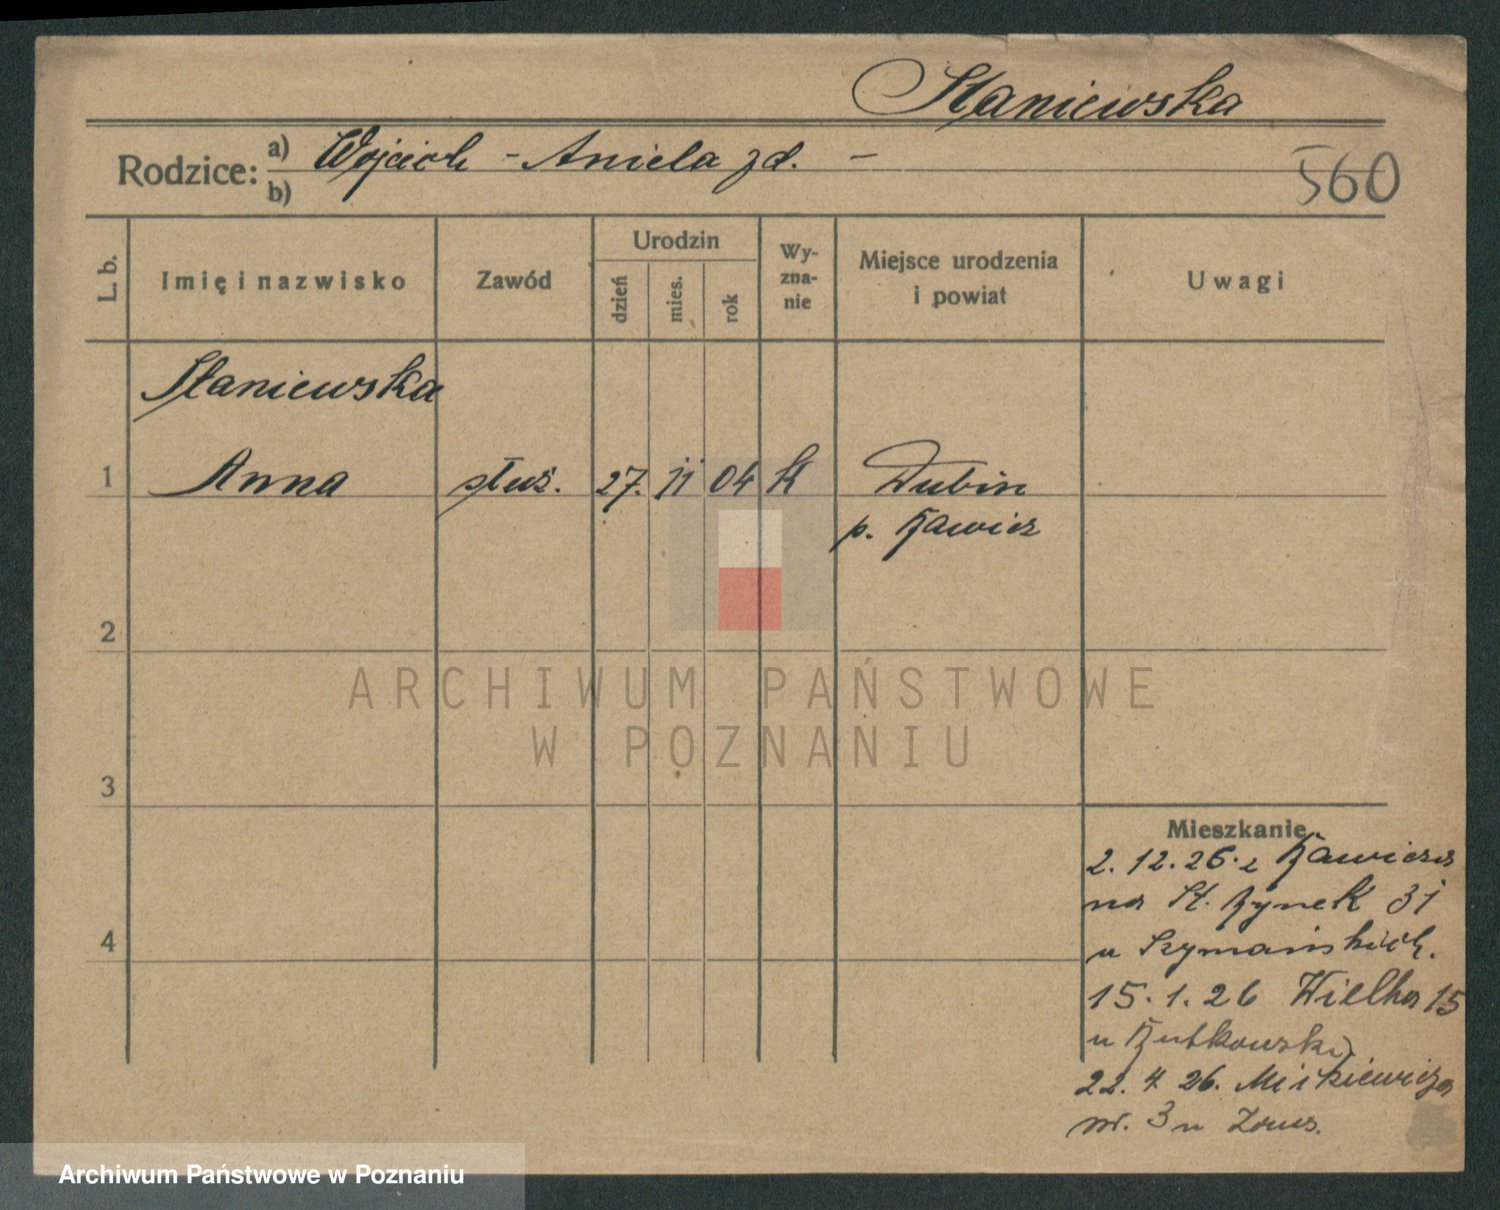 Staniewska
Rodzice: a) Wojciech - Aniela zd. -
b)
560
L. b.
Imię i nazwisko
Zawód
Urodzin
dzień
mies.
rok
Wy-
zna-
nie
Miejsce urodzenia
i powiat
Uwagi
Staniewska
1 Anna służ. 27. 11 04 k Dubin
p. Rawicz
2
3
4
ARCHIWUM PAŃSTWOWE
W POZNANIU
Mieszkanie
2. 12. 26. z Rawicza
na St. Rynek 31
u Szymańskich.
15. 1. 26 Wielka 15
u Rutkowski
22. 4. 26. Mickiewicza
nr. 3 u
Archiwum Państwowe w Poznaniu